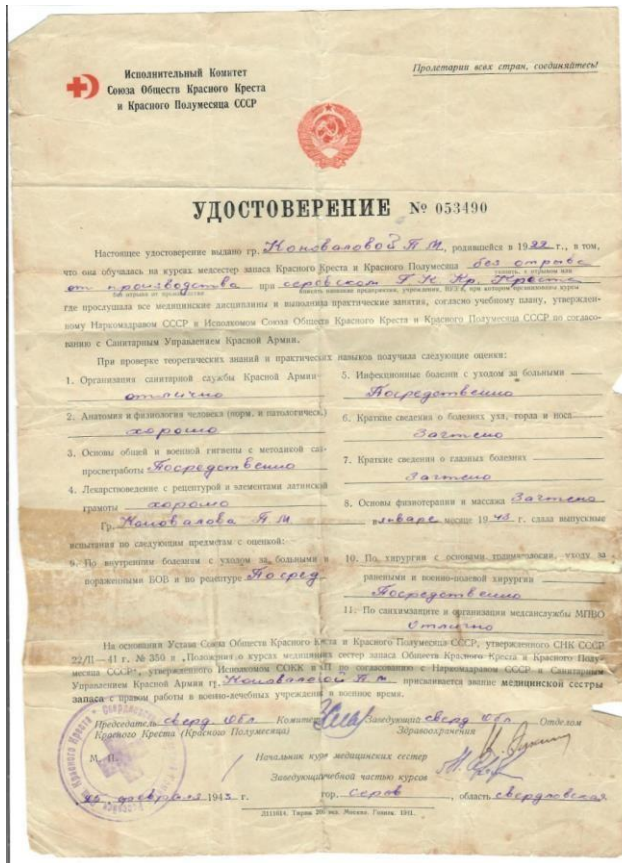 Исполнительный Комитет
Союза Обществ Красного Креста
и Красного Полумесяца СССР
Пролетарии всех стран, соединяйтесь!
УДОСТОВЕРЕНИЕ № 053490
Настоящее удостоверение выдано гр. Коноваловой П. М., родившейся в 1922 г., в том,
что она обучалась на курсах медсестер запаса Красного Креста и Красного Полумесяца без отрыва
от производства при серовском Г. К. Кр. Креста
где прослушала все медицинские дисциплины и выполнила практические занятия, согласно учебному плану, утвержден-
ному Наркомздравом СССР и Исполкомом Союза Обществ Красного Креста и Красного Полумесяца СССР по согласо-
ванию с Санитарным Управлением Красной Армии.
При проверке теоретических знаний и практических навыков получила следующие оценки:
1. Организация санитарной службы Красной Армии
отлично
2. Анатомия и физиология человека (норм. и патологическ.)
хорошо
3. Основы общей и военной гигиены с методикой сан-
просветработы Посредственно
4. Лекарствоведение с рецептурой и элементами латинской
грамоты хорошо
5. Инфекционные болезни с уходом за больными
Посредственно
6. Краткие сведения о болезнях уха, горла и носа
Зачтено
7. Краткие сведения о глазных болезнях
Зачтено
8. Основы физиотерапии и массажа Зачтено
Гр. Коновалова П. М. в январе месяце 1943 г. сдала выпускные
испытания по следующим предметам с оценкой:
9. По внутренним болезням с уходом за больными и
пораженными БОВ и по рецептуре Посред
10. По хирургии с основами травматологии, уходу за
ранеными и военно-полевой хирургии
Посредственно
11. По санхимзащите и организации медсанслужбы МПВО
Отлично
На основании Устава Союза Обществ Красного Креста и Красного Полумесяца СССР, утвержденного СНК СССР
22/II—41 г. № 350 и „Положения о курсах медицинских сестер запаса Обществ Красного Креста и Красного Полу-
месяца СССР", утвержденного Исполкомом СОКК и КП по согласованию с Наркомздравом СССР и Санитарным
Управлением Красной Армии гр. Коноваловой П. М. присваивается звание медицинской сестры
запаса с правом работы в военно-лечебных учреждениях в военное время.
Председатель сверд. Обл. Комитета
Красного Креста (Красного Полумесяца)
Заведующий сверд. Обл. Отделом
Здравоохранения
М. П.
Начальник курсов медицинских сестер
Заведующий учебной частью курсов
25 февраля 1943 г. гор. Серов, область свердловская